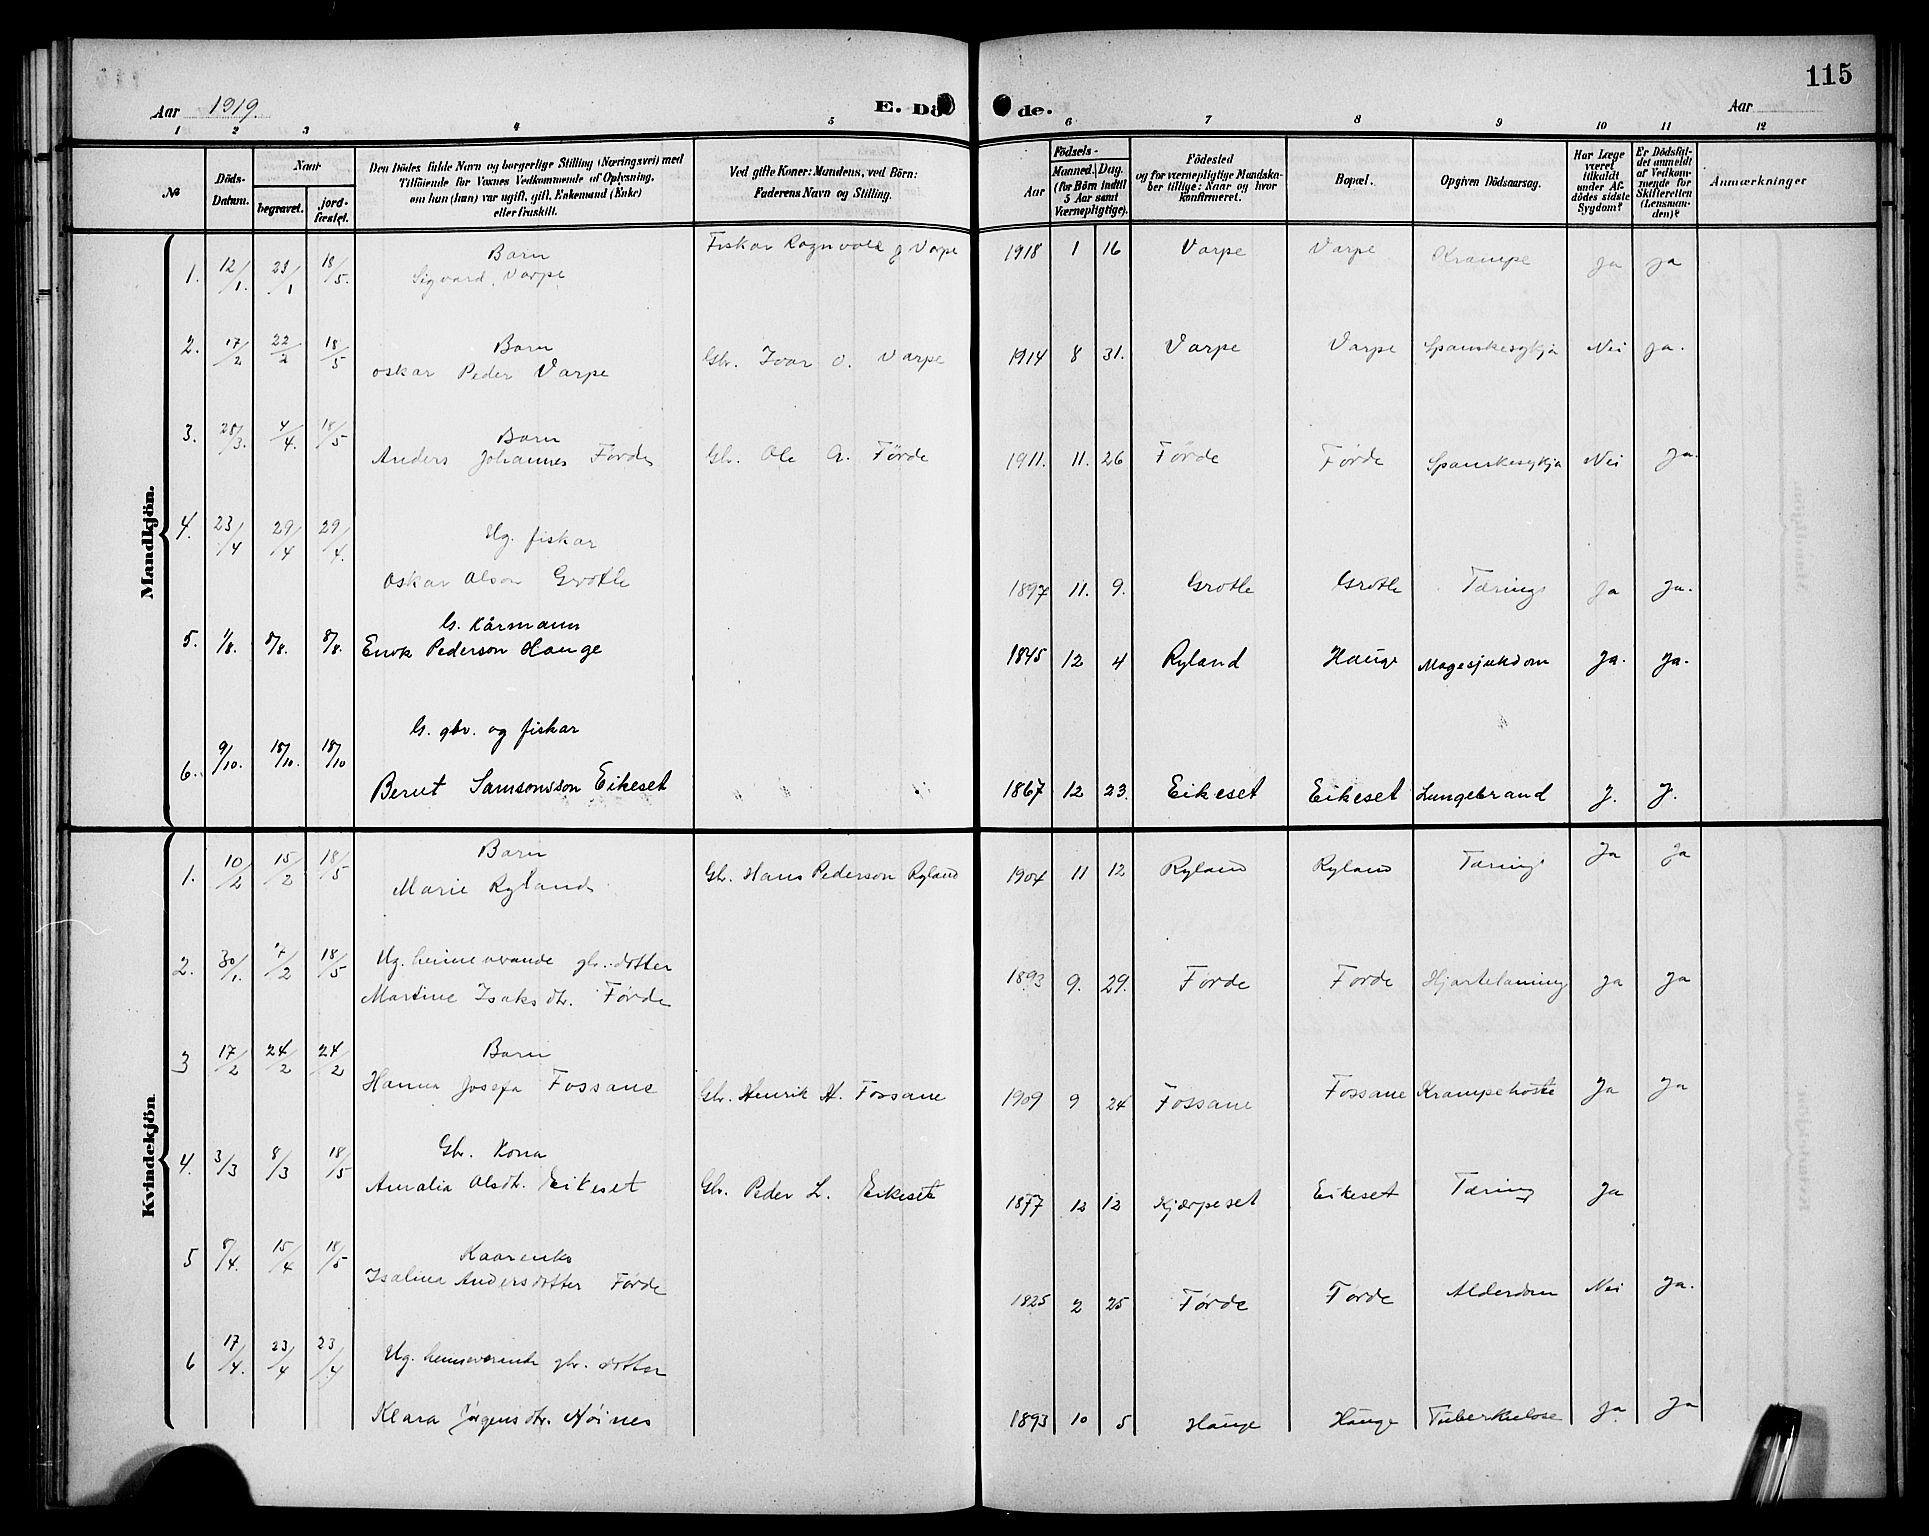 115
Aar 1919. E. Dö de. Aar
1 2 3 4 5 6 7 8 9 10 11 12
№ Döds-Datum. Naar begravet. jordfæstet. Den Dödes fulde Navn og borgerlige Stilling (Næringsvei) med Tilföiende for Voxnes Vedkommende af Oplysning, om hun (han) var ugift, gift, Enkemand (Enke) eller fraskilt. Ved gifte Koner: Mandens, ved Börn: Faderens Navn og Stilling. Aar Födsels- Maaned. Dag. (for Börn indtil 5 Aar samt Værnepligtige). Födested og for værnepligtige Mandskaber tillige: Naar og hvor konfirmeret. Bopæl. Opgiven Dödsaarsag. Har Læge været tilkaldt under Afdödes sidste Sygdom? Er Dödsfaldet anmeldt af Vedkommende for Skifteretten (Lensmanden)? Anmærkninger
Mandkjön.
1. 12/1. 23/1 18/5. Barn Fiskar Ragnvald Varpe 1918 1 16 Varpe Varpe Krampe Ja Ja
Sigvard Varpe
2. 17/2 22/2 18/5 Barn Gbr. Ivar O. Varpe 1914 8 31. Varpe Varpe Spanskesykja Nei Ja.
Oskar Peder Varpe
3. 28/3. 4/4. 18/5 Barn
Anders Johannes Førde Gbr. Ole A. Førde 1911. 11. 26 Førde Førde Spanskesykja Nei Ja.
4. 23/4 29/4 29/4. Ug. fiskar
Oskar Olson Grotle 1897 11. 9. Grotle Grotle Tæring Ja Ja.
5. 1/8. 8/8. 8/8. G. Kårmann
Enok Pederson Hauge 1845 12 4 Ryland Hauge Magesjukdom Ja. Ja.
6. 9/10. 18/10. 18/10 G. gbr. og fiskar
Bernt Samsonsson Eikeset 1867 12 23. Eikeset Eikeset Lungebrand J. J.
Kvindekjön.
1. 10/2 15/2 18/5 Barn Gbr. Hans Pederson Ryland 1904 11 12 Ryland Ryland Tæring Ja Ja
Marie Ryland
2. 30/1. 7/2 18/5 Ug. heimeverande gbr. dotter 1893 9. 29. Førde Førde Ja Ja
Martine Isaksdtr. Førde
3 17/2 24/2 24/2 Barn
Hanna Josefa Fossane Gbr. Henrik H. Fossane 1909 9 24 Fossane Fossane Krampehoste Ja Ja
4. 3/3 8/3 18/5 Gbr. Kona
Amalia Olsdtr. Eikeset Gbr. Peder L. Eikeset 1877 12 12 Kjærpeset Eikeset Tæring Ja
5 8/4. 15/4 18/5 Kaarenke
Isalina Andersdotter Førde 1825 2 25 Førde Førde Alderdom Nei Ja.
6 17/4. 23/4 23/4 Ug. heimeverande gbr. dotter
Klara Jørgensdtr. 1893 10 5 Hauge Hauge Tuberkulose Ja Ja